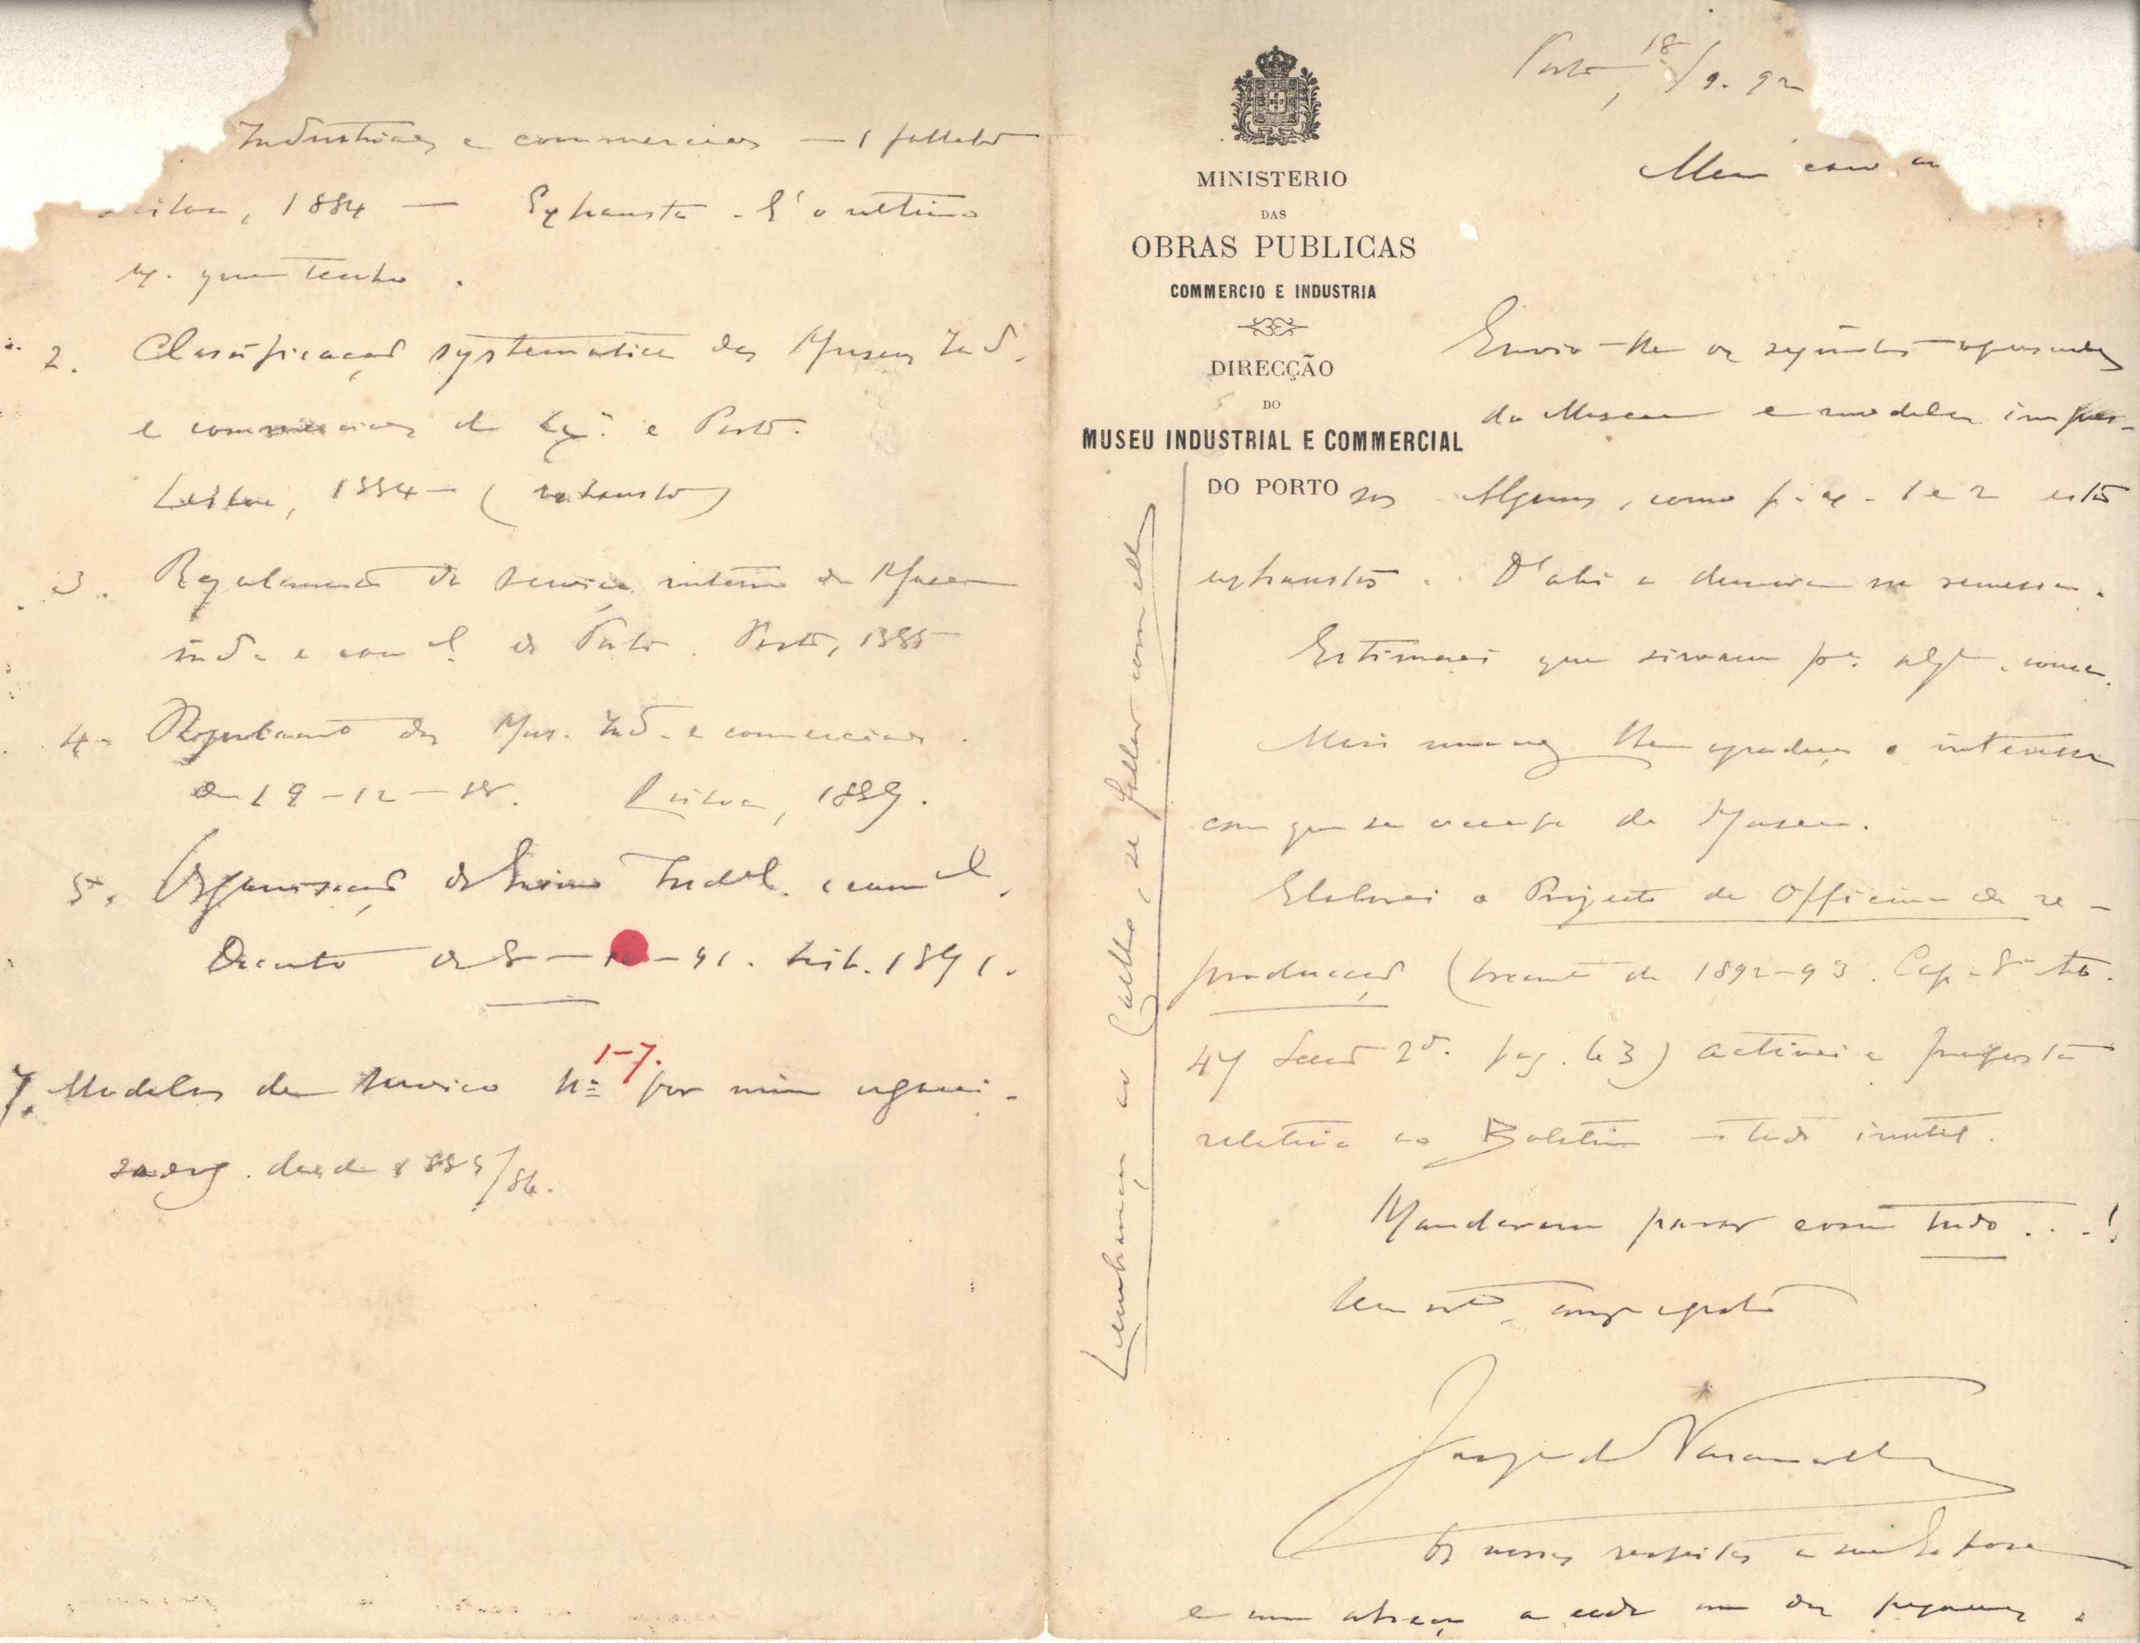 Industriaes e commerciaes — 1 folheto
Lisboa, 1884 — Exhausto. É o ultimo
ex. que tenho.
2. Classificação systematica dos Museus Ind.
e commerciaes de Lx.ª e Porto.
Lisboa, 1884 — (exhausto)
3. Regulamento do serviço interno do Museu
ind. e com.al do Porto. Porto, 1885
4. Regulamento dos Mus. Ind. e commerciaes.
de 19-12-88. Lisboa, 1889.
5. Organisação do Ensino Indal. e com.al.
Decreto de 8 — 10 — 91. Lisb. 1891.
7. Modelos de serviço Nos 1-7. por mim organi-
sados. desde 1885/86.
Porto, 18/9. 92
Meu caro
MINISTERIO
DAS
OBRAS PUBLICAS
COMMERCIO E INDUSTRIA
DIRECÇÃO
DO
MUSEU INDUSTRIAL E COMMERCIAL
DO PORTO
Envio-lhe os seguintes
do Museu e modelos impres-
sos. Alguns, como p. ex. 1 e 2 estão
exhaustos. D'ahi a demora na remessa.
Estimarei que sirvam p.ª alg.ª cousa.
Mais uma vez lhe agradeço o interesse
com que se occupa do Museu.
Elaborei o Projecto da Officina de re-
producção (Orçamto de 1892-93. Cap.
47 Secção 2ª. pag. 63) activei a proposta
relativa ao Boletim — tudo inutil.
Mandaram parar com tudo . . . !
amigo grato
Joaquim de Vasconcellos
Os nossos respeitos a sua Esposa
e um abraço a cada um dos pequenos.
Lembranças ao Coelho, se fallar com elle